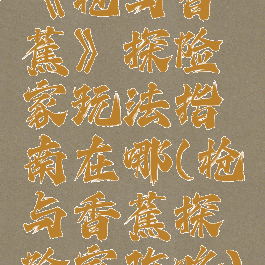 《枪与香
蕉》探险
家玩法指
南在哪(枪
与香蕉探
险家攻略)